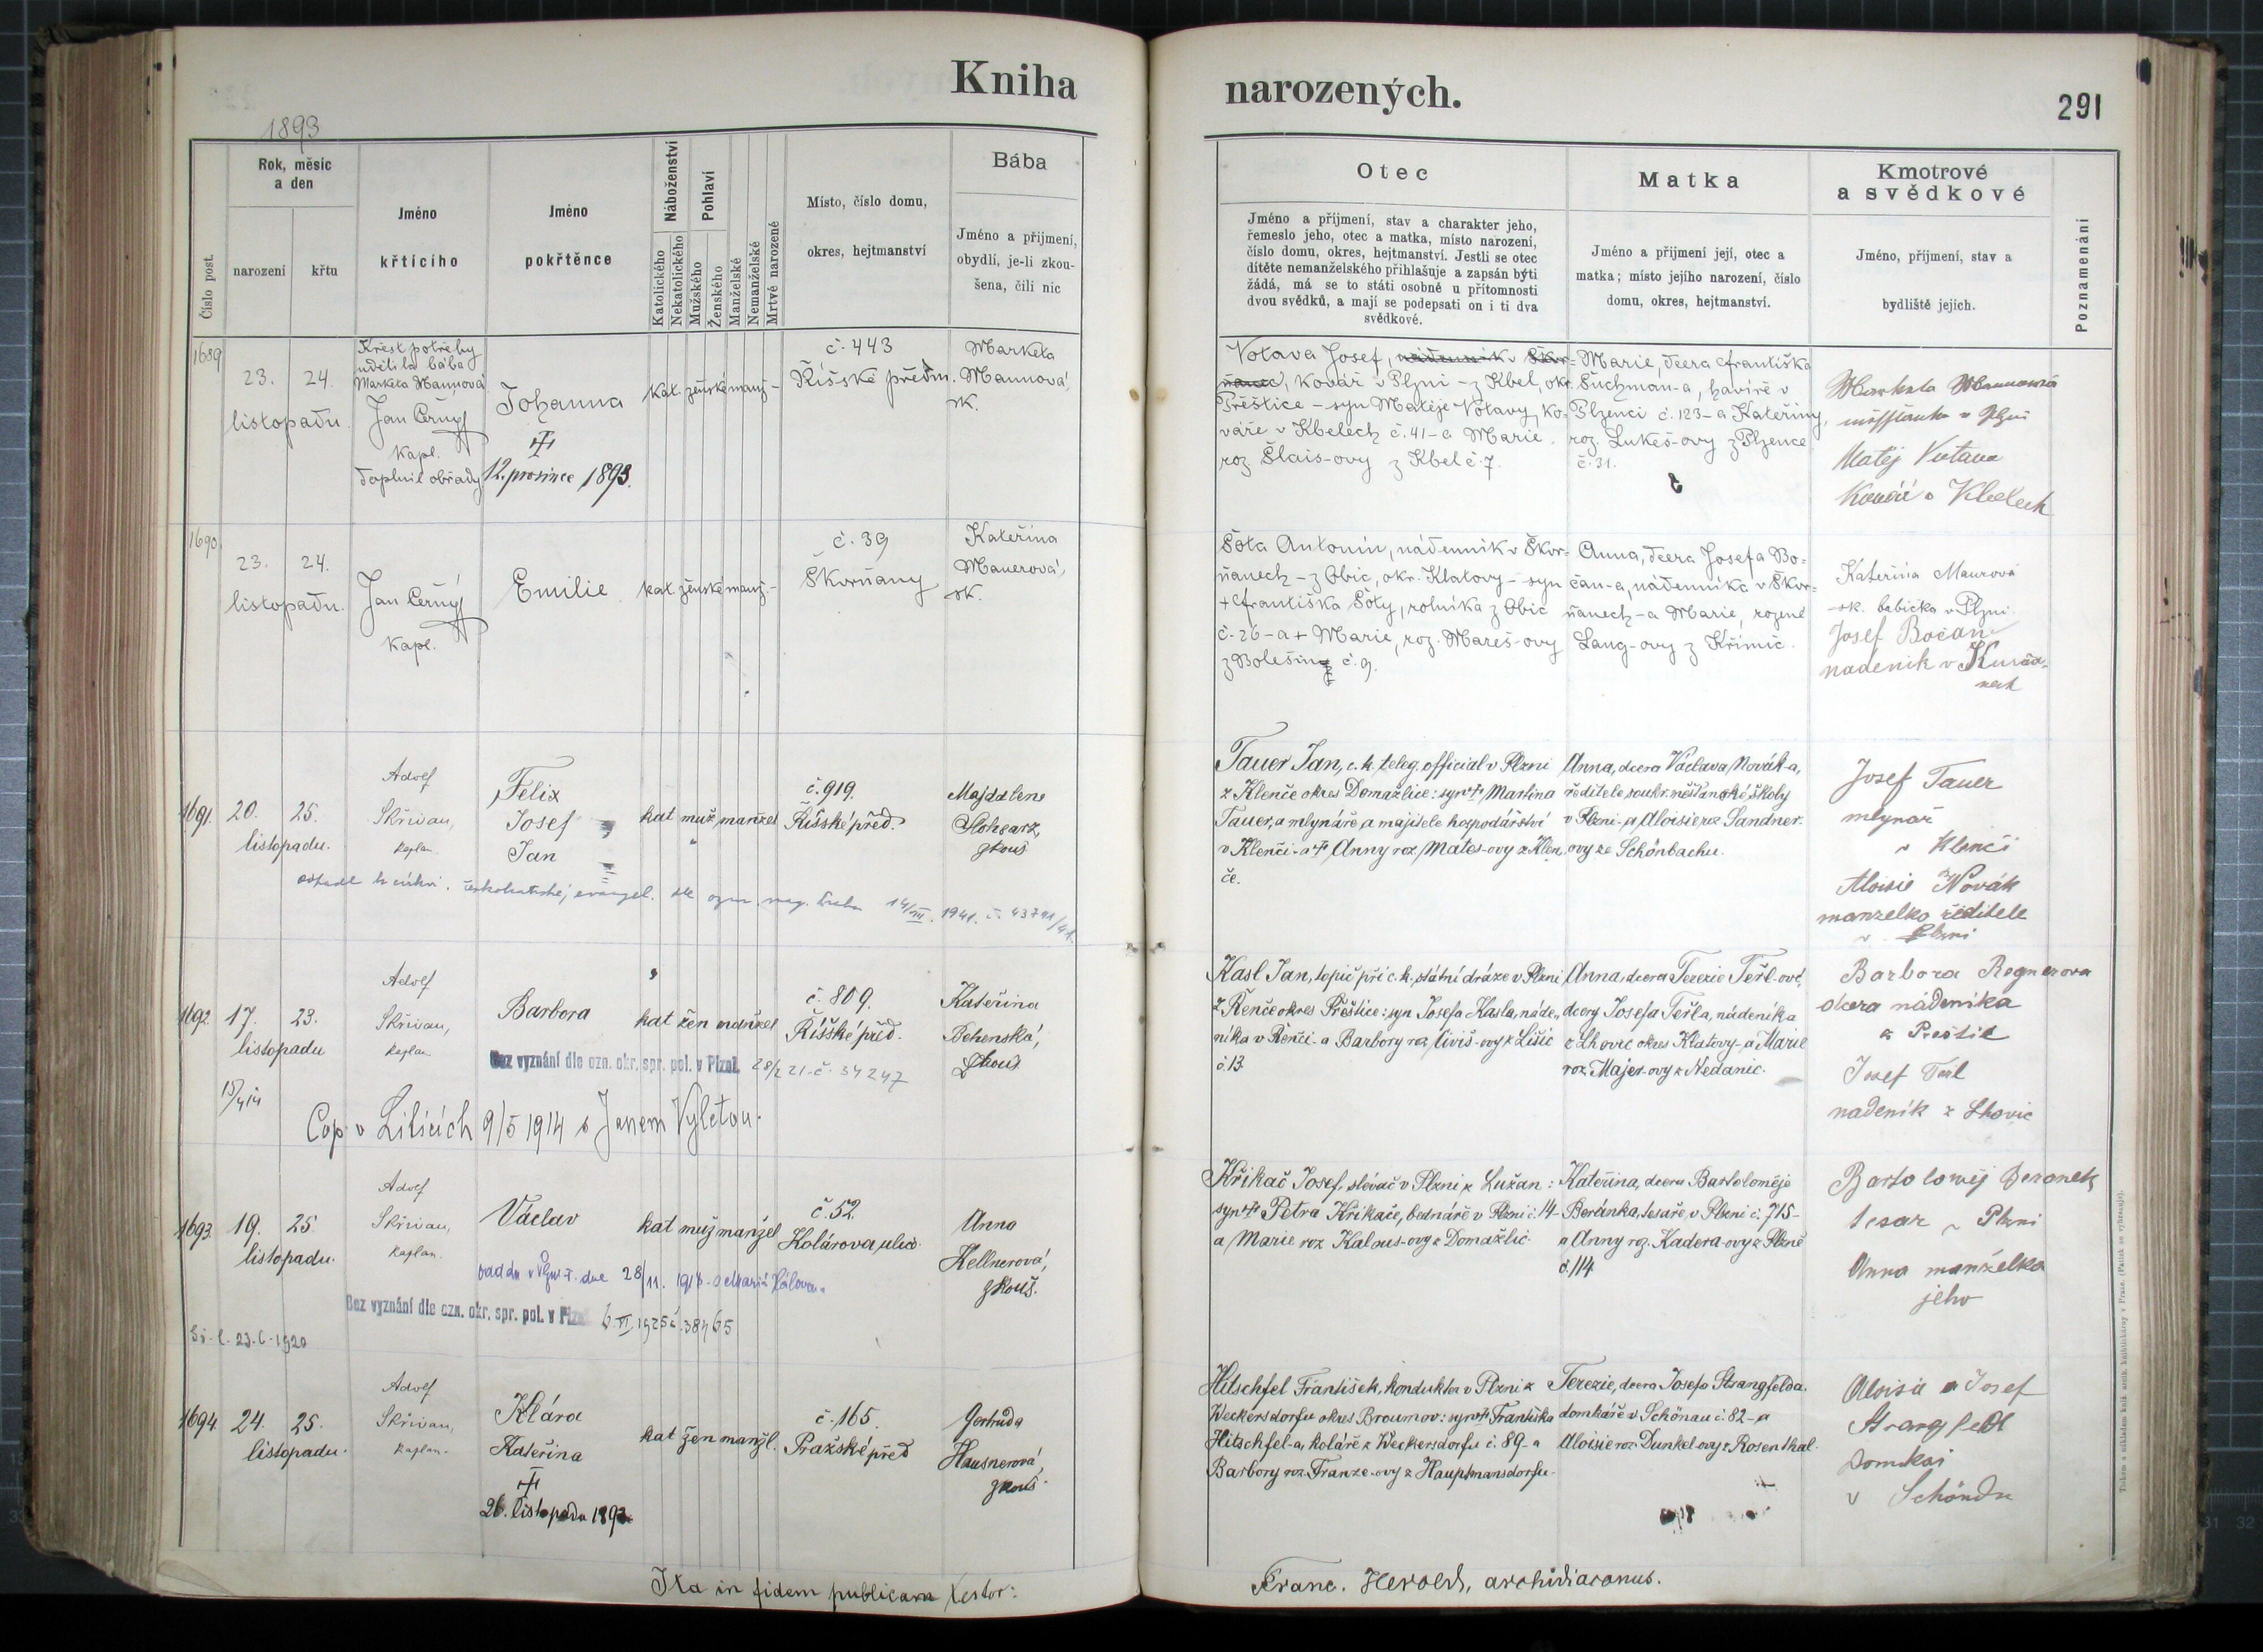 Kniha
narozených.
291
1893
Číslo post.
Rok, měsíc
a den
narození
křtu
Jméno
křtícího
Jméno
pokřtěnce
Náboženství
Katolického
Nekatolického
Pohlaví
Mužského
Ženského
Manželské
Nemanželské
Mrtvě narozené
Místo, číslo domu,
okres, hejtmanství
Bába
Jméno a příjmení,
obydlí, je-li zkou-
šena, čili nic
Otec
Jméno a příjmení, stav a charakter jeho,
řemeslo jeho, otec a matka, místo narození,
číslo domu, okres, hejtmanství. Jestli se otec
dítěte nemanželského přihlašuje a zapsán býti
žádá, má se to státi osobně u přítomnosti
dvou svědků, a mají se podepsati on i ti dva
svědkové.
Matka
Jméno a příjmení její, otec a
matka; místo jejího narození, číslo
domu, okres, hejtmanství.
Kmotrové
a svědkové
Jméno, příjmení, stav a
bydliště jejich.
Poznamenání
1689
23. 24.
listopadu
Křest potřeby
udělila bába
Marketa Mannová
Jan Černý
kapl.
doplnil obřady
Johanna
12. prosince 1893.
kat. ženské manž-
č. 443
Říšské předm.
Marketa
Mannová,
zk.
Votava Josef, nádenník v Škvr-
ňanec, kovář v Plzni - z Kbel, okr.
Přeštice - syn Matěje Votavy, ko-
váře v Kbelech č. 41 - a Marie
roz. Šlais-ovy z Kbel č. 7.
Marie, dcera Františka
Suchman-a, havíře v
Plzenci č. 123 - a Kateřiny,
roz. Lukeš-ovy z Plzence
č. 31.
Marketa Mannowá
v Plzni
Matěj Votava
Kovář v Kbelech
1690
23. 24.
listopadu.
Jan Černý
kapl.
Emilie
kat. ženské manž.-
č. 39
Škvrňany
Kateřina
Mauerová,
zk.
Šota Antonín, nádenník v Škvr-
ňanech - z Obic, okr. Klatovy - syn
+ Františka Šoty, rolníka z Obic
č. 26 - a + Marie, roz. Mareš-ovy
z Bolešin č. 9.
Anna, dcera Josefa Bo-
čan-a, nádenníka v Škvr-
ňanech - a Marie, rozené
Lang-ovy z Křimic.
Kateřina Maurová
zk. babička v Plzni.
Josef Bočan
nadenik v
1691.
20. 25.
listopadu.
Adolf
Skřivan,
kaplan.
Felix
Josef
Jan
kat muž manžel
č. 919.
Říšské před.
Majdalena
zkouš
14/III. 1941. č. 43791/41.
Tauer Jan, c. k. teleg. official v Plzni
z Klenče okres Domažlice: syn + Martina
Tauer, a mlynáře a majitele hospodářství
v Klenči - a + Anny roz. Mates-ovy z Klen
če.
Anna, dcera Václava Novák-a,
ředitele soukr. měšťanské školy
v Plzni - a Aloisie roz. Sandner-
ovy ze Schönbachu.
Josef Tauer
mlynař
v Klenči
Aloisie Novák
manzelka ředitele
v Plzni
1692.
17. 23.
listopadu
Adolf
Skřivan,
kaplan
Barbora
kat žen manžel
č. 809.
Říšské před.
Kateřina
zkouš
Bez vyznání dle ozn. okr. spr. pol. v Plzni. 28/2 21. č. 34247
Cop. v Liticích 9/5 1914 s Janem Vyletou.
Kasl Jan, topič při c. k. státní dráze v Plzni
z Řenče okres Přeštice: syn Josefa Kasla, náde-
níka v Řenči - a Barbory roz. Liviš-ovy z Lišic
č. 13.
Anna, dcera Terezie Teřl-ové,
dcery Josefa Teřla, nádeníka
z Lhovic okres Klatovy - a Marie
roz. Majer-ovy z Nedanic.
Barbora Regnerova
dcera nádeníka
z Preštic
Josef Terl
nadeník z Lhovic
1693.
19. 25.
listopadu.
Adolf
Skřivan,
kaplan.
Václav
kat muž manžel
č. 52.
Kolárova ulice.
Anna
Kellnerová,
zkouš.
oddán v Plzni dne 28/11. 1918
Bez vyznání dle ozn. okr. spr. pol. v Plzni 6. VI. 1925 č. 38465
Křikač Josef, slévač v Plzni z Lužan:
syn + Petra Křikače, bednáře v Plzni č. 14 -
a Marie roz. Kalous-ovy z Domažlic.
Kateřina, dcera Bartoloměje
Beránka, tesaře, v Plzni č. 715 -
a Anny roz. Kadera-ovy z Plzně
č. 114
Bartoloměj Beranek
tesar v Plzni
Anna manželka
jeho
1694.
24. 25.
listopadu.
Adolf
Skřivan,
kaplan.
Klára
Kateřina
26. listopadu 1893
kat žen manžl.
č. 165.
Pražské před
Gertruda
Hausnerová,
zkouš.
Hitschfel František, konduktor v Plzni z
Weckersdorfu okres Broumov: syn + Františka
Hitschfel-a, koláře z Weckersdorfu č. 89 - a
Barbory roz. Franze-ovy z Hauptmansdorfu.
Terezie, dcera Josefa Strangfelda,
domkáře v Schönau č. 82 - a
Aloisie roz. Dunkel-ovy z Rosenthal.
Aloisia a Josef
Strangfeld
Domkař
v Schönau
Ita in fidem publicam testor:
Franc. Herold, archidiaconus.